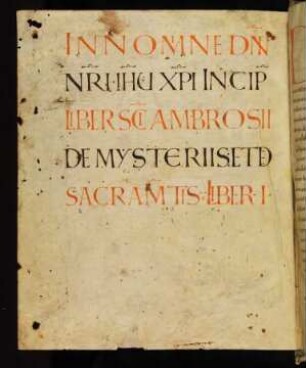 IN NOMINE DNI
NRI IHU XPI INCIP
LIBER SCI AMBROSII
DE MYSTERIIS ET DE
SACRAMTIS LIBER · I ·